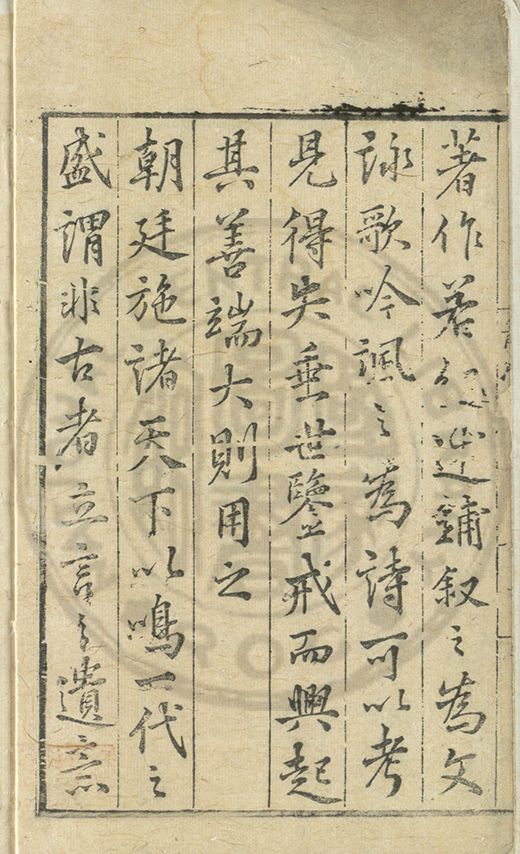 著作若紀述鋪叙之為文
詠歌吟諷之為詩可以考
見得失垂世鑒戒而興起
其善端大則用之
朝廷施諸天下以鳴一代之
盛謂非古者立言之遺意